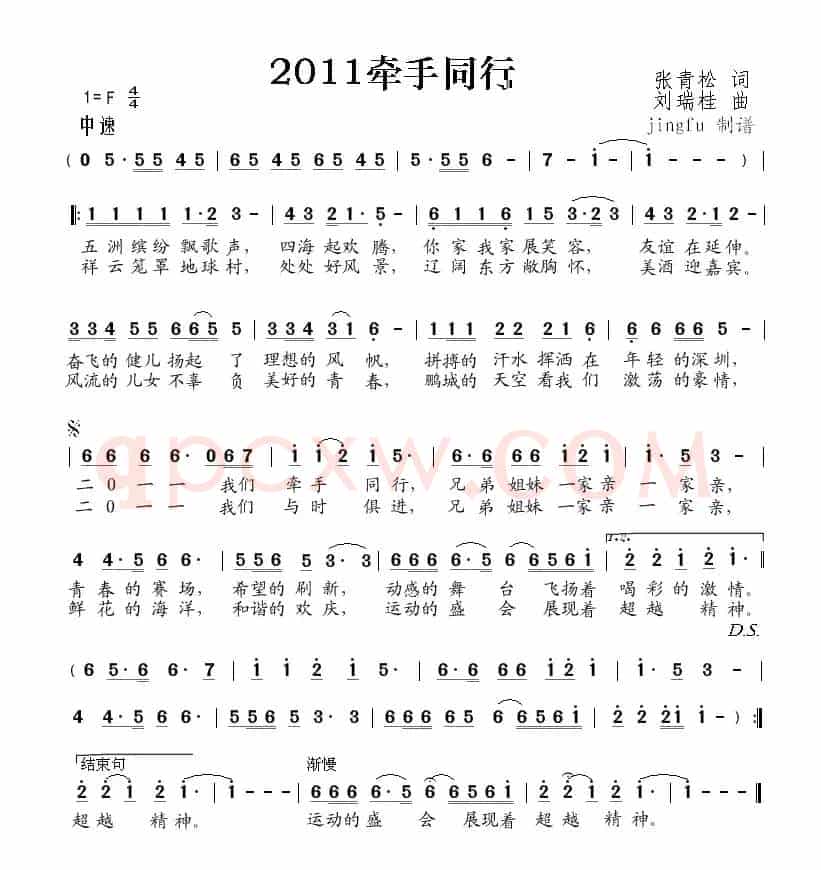 2011牵手同行
张青松 词
1=F 4/4
刘瑞桂 曲
中速
jingfu 制谱
( 0 5· 55 45 | 65 45 65 45 | 5· 55 6 - | 7 - i - | i - - - )
‖: 1 1 1 1 1·2 3 - | 43 21· 5 - | 6 1 1 6 15 3·2 3 | 43 2·1 2 - |
五洲缤纷飘歌声， 四海起欢腾， 你家我家展笑容， 友谊在延伸。
祥云笼罩地球村， 处处好风景， 辽阔东方敞胸怀， 美酒迎嘉宾。
334 55 665 5 | 334 31 6 - | 111 22 21 6 | 6 66 5 - |
奋飞的健儿扬起了理想的风帆， 拼搏的汗水挥洒在年轻的深圳，
风流的儿女不辜负美好的青春， 鹏城的天空看我们激荡的豪情，
| 66 66· 067 | i i2 i 5· | 66 66 i2 i | i· 5 3 - |
二0一一我们牵手同行， 兄弟姐妹一家亲一家亲，
二0一一我们与时俱进， 兄弟姐妹一家亲一家亲，
1.2.
4 4·5 66· | 556 5 3·3 | 666 6·5 6 6561 | 2 2i 2 i· | i - - - ‖
青春的赛场， 希望的刷新， 动感的舞台飞扬着喝彩的激情。
鲜花的海洋， 和谐的欢庆， 运动的盛会展现着超越精神。
D.S.
( 6 5·6 6·7 | i i2 i 5· | 6 6·6 i2 i | i· 5 3 - |
4 4·5 66· | 556 5 3·3 | 666 65 66 6561 | 2 2 2i i· | i - - ) :‖
结束句
渐慢
2 2i 2 i· | i - - - | 666 6·5 6 6561 | 2 2i 2 i· | i - - - ‖
超越精神。 运动的盛会展现着超越精神。
qpcxw.COM